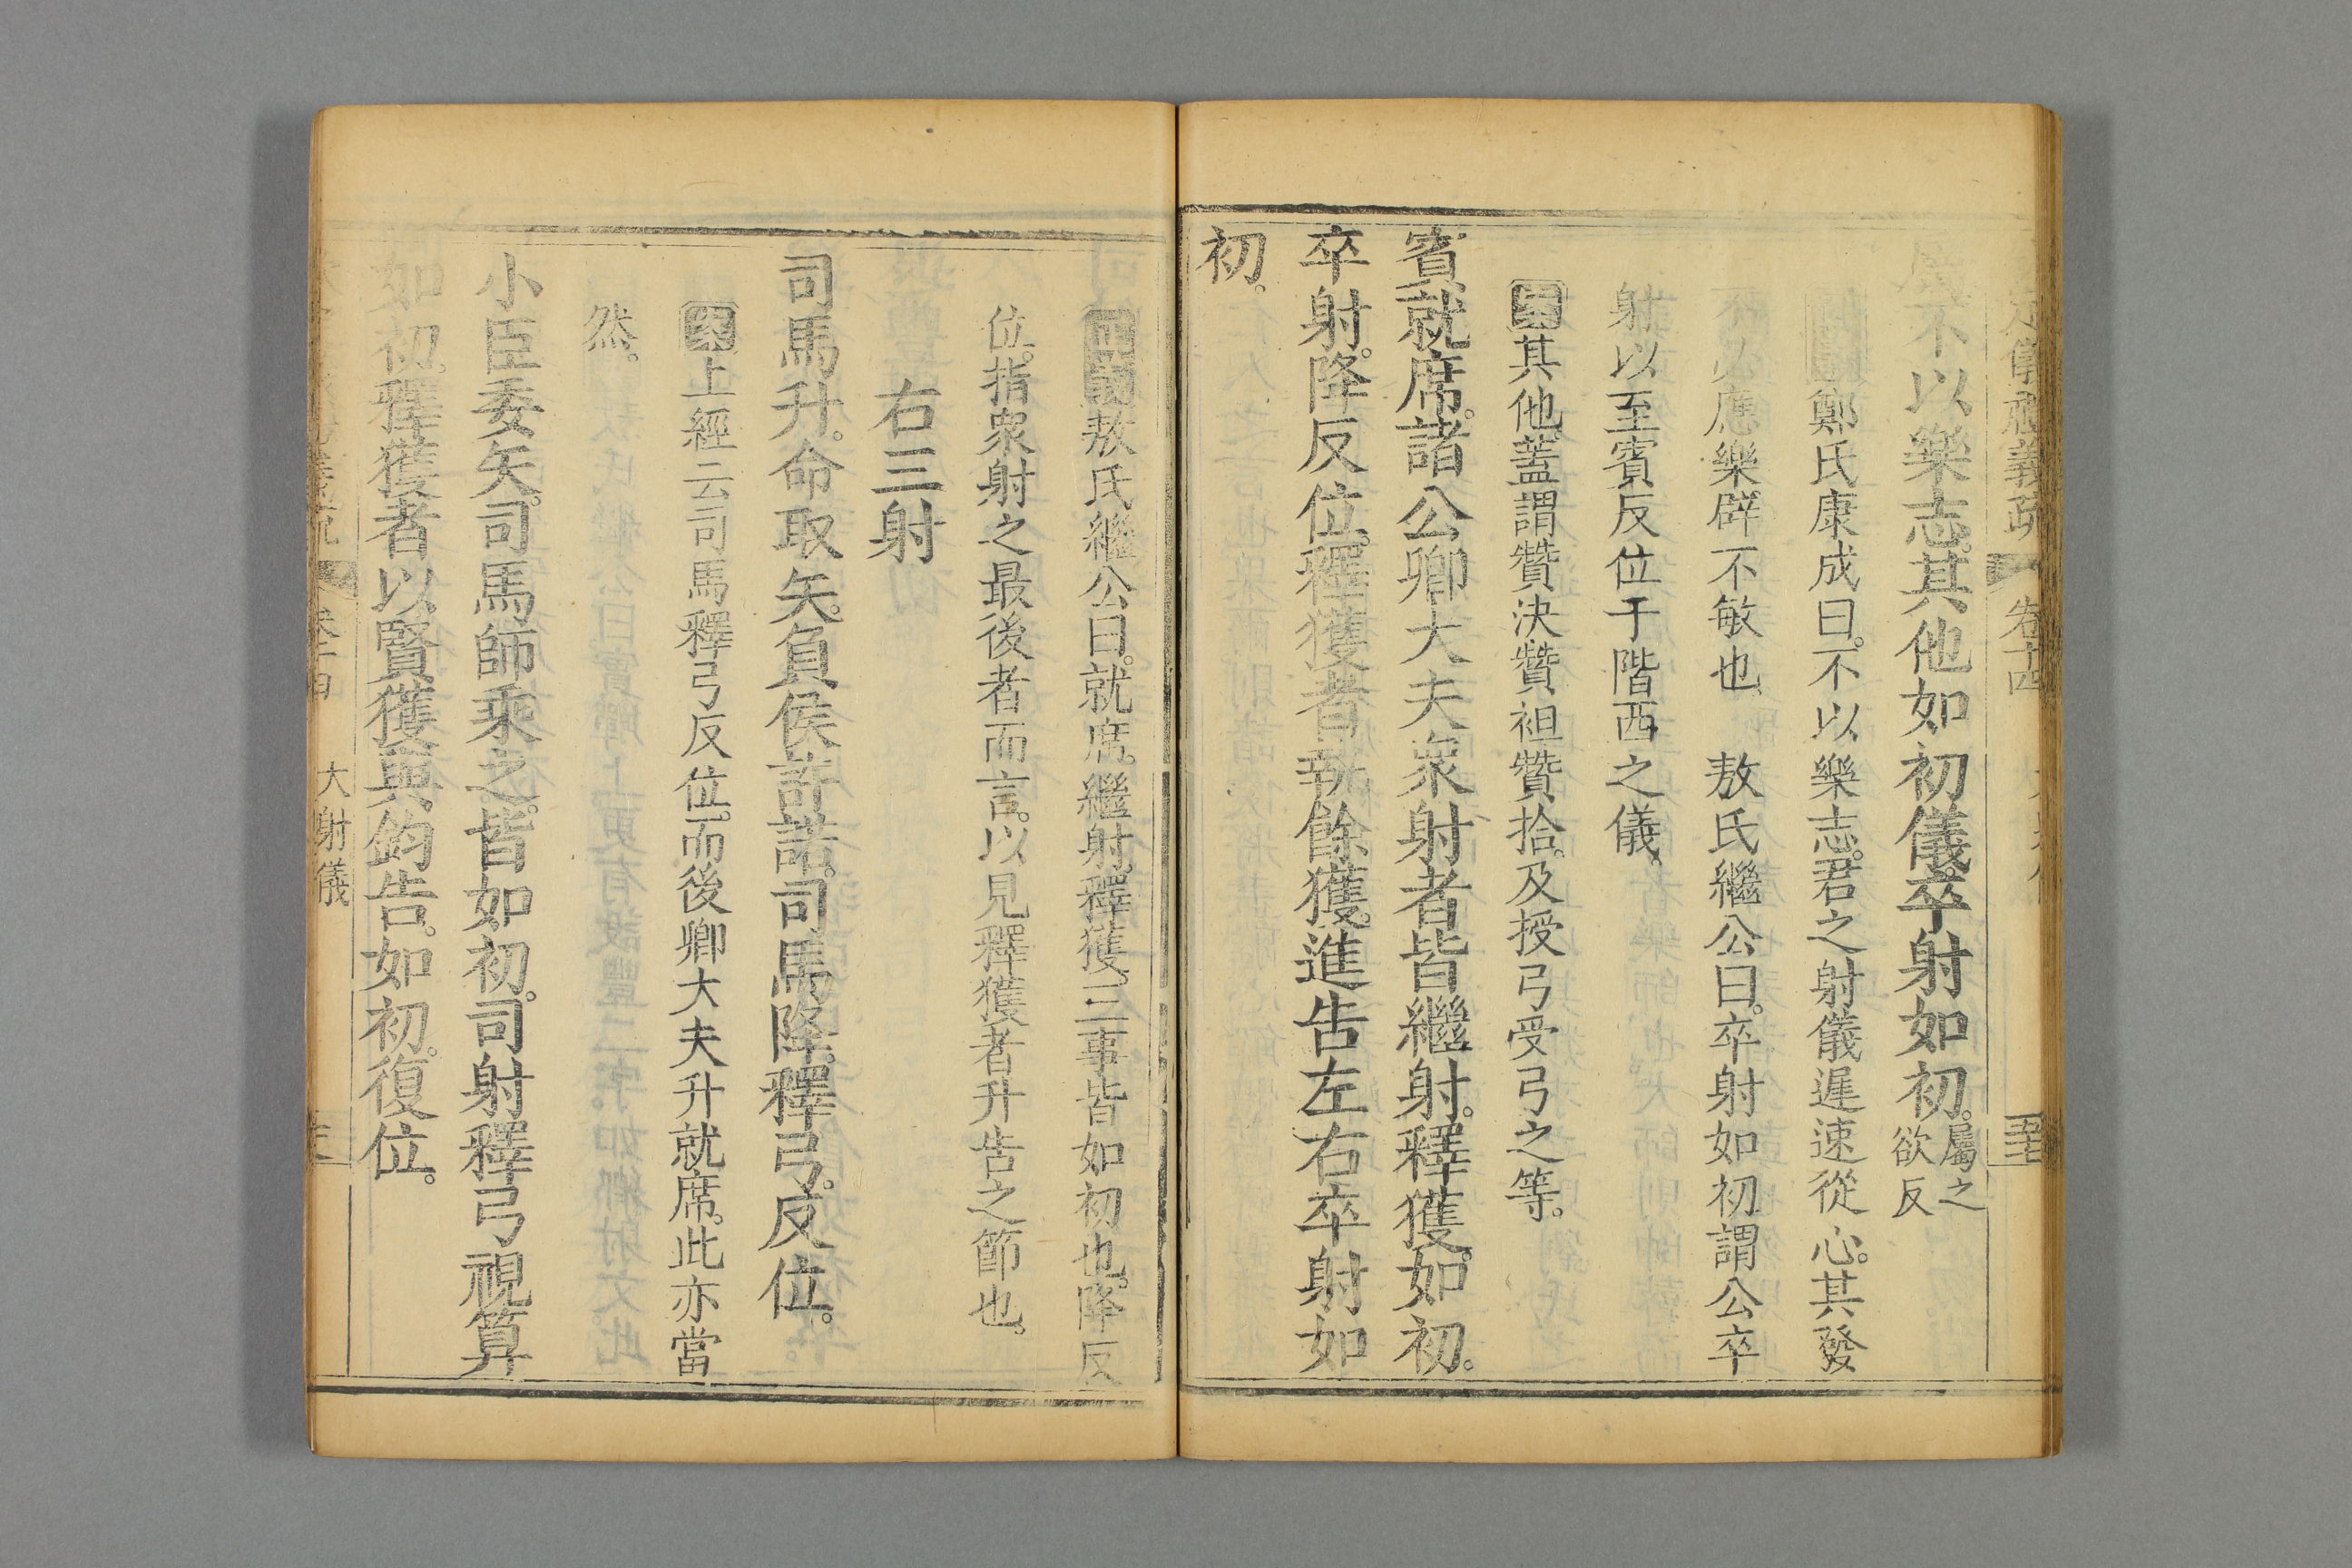 屬不以樂志。其他如初儀。卒射如初。屬之欲反
鄭氏康成曰。不以樂志。君之射儀遲速從心。其發
不以應樂辟不敏也。 敖氏繼公曰。卒射如初謂公卒
射以至賓反位于階西之儀。
案其他。蓋謂贊決贊袒贊拾。及授弓受弓之等。
賓就席。諸公卿大夫衆射者皆繼射。釋獲。如初。
卒射。降反位。釋獲者執餘獲。進告左右卒射如
初。
正義敖氏繼公曰。就席。繼射。釋獲。三事皆如初也。降反
位。指衆射之最後者而言。以見釋獲者升告之節也。
右三射
司馬升。命取矢。負侯許諾。司馬降。釋弓。反位。
案上經云司馬釋弓反位。而後卿大夫升就席。此亦當
然。
小臣委矢。司馬師乘之。皆如初。司射釋弓視算
如初。釋獲者以賢獲與鈞告。如初。復位。
大射儀